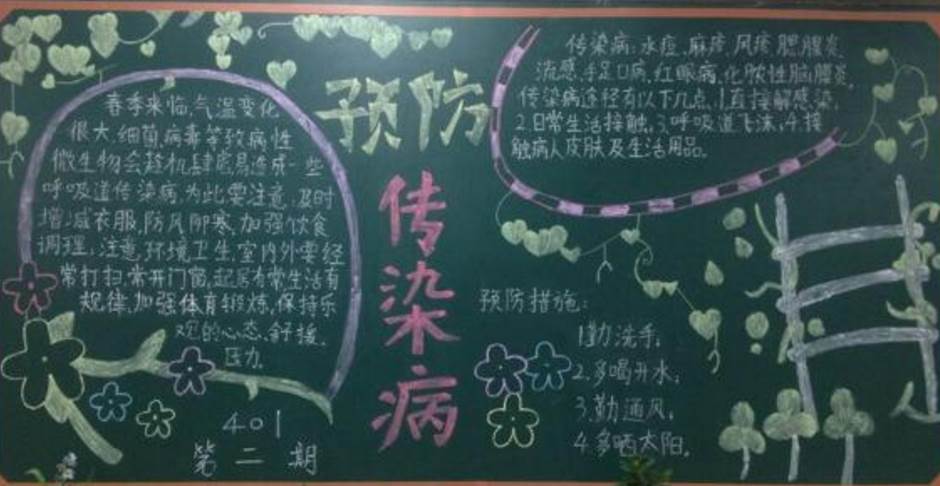 预防
传染病
春季来临，气温变化
很大，细菌病毒等致病性
微生物会趁机肆虐，易造成一些
呼吸道传染病，为此要注意，及时
增减衣服，防风御寒，加强饮食
调理，注意环境卫生，室内外要经
常打扫，常开门窗，起居有常生活有
规律，加强体育锻炼，保持乐
观的心态，舒缓
压力。
401
第二期
传染病：水痘、麻疹、风疹、腮腺炎、
流感、手足口病、红眼病、化脓性脑膜炎，
传染病途经有以下几点，1.直接解感染，
2.日常生活接触，3.呼吸道飞沫，4.接
触病人皮肤及生活用品。
预防措施：
1.勤洗手；
2.多喝开水；
3.勤通风；
4.多晒太阳。